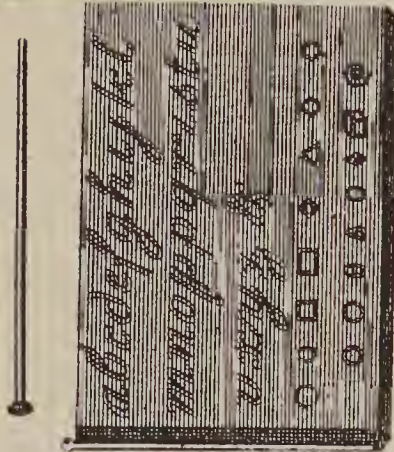 abcdefghijkl
mnopqrstu
vxyz